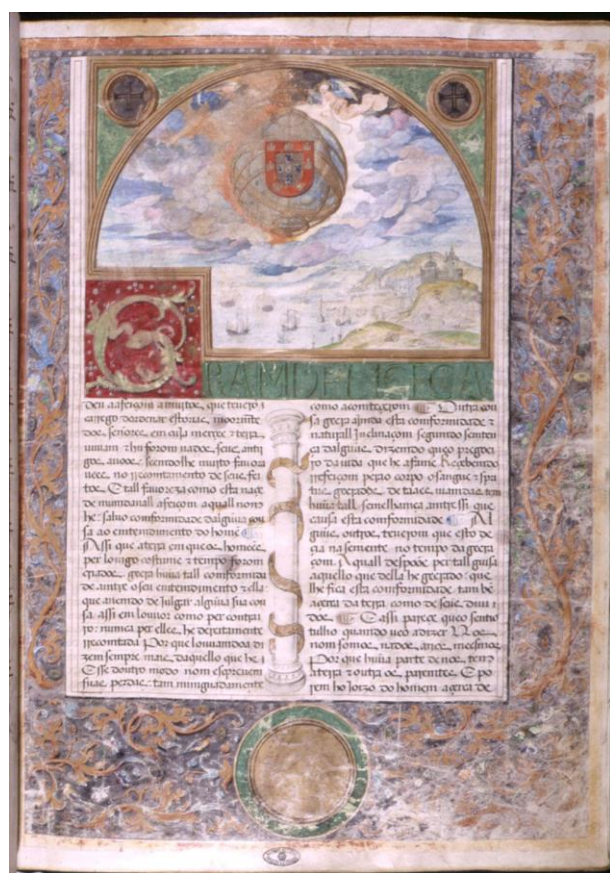 GRAMDE LICECA
deu aafeiçom amujtos, que teuerõ
carrego dordenar estorias, moormẽte
dos senores em cuja merçee z terra
uiuiam z hu forom nados seus antij
gos auoos seendo lhe mujto fauora
uees no rrecontamento de seus fei
tos. E tall fauoreza como esta naçe
de mundanall afeiçom aquall nom
he: saluo comformidade dalgũa cou
sa ao entendimento do homẽ
Assi que aterra em que os homẽes
per longo costume z tempo forom
criados geera hũa tall comformida
de antre o seu entendimento z ella
que auendo de julgar algũua sua cou
sa: assi em louuor como per contrai
ro: nunca per elles he dereitamente
rrecontada Por que louuamdoa di
zem sempre mais daquello que he
E se doutro modo nom espreuem
suas perdas: tam minguadamente
como acomteçerom Outra cou
sa geera ajnda esta comformidade z
naturall Inclinaçom segundo senten
ça dalguũs. dizendo que o pregoei
ro da uida que he afame. Reçebendo
rrefeiçom pera o corpo o sangue z spri
tos geerados de taaes uiamdas, tem
hũua tall semelhança antre ssi que
causa esta comformidade Al
guũs outros teuerom que esto de
çia na semente no tempo da geera
çom. A quall despoee per tall guisa
aquello que della he geerado: que
lhe fica esta comformidade tam bẽ
açerca da terra como de seus diui
dos E assi pareçe que o sentio
tullio quando ueo a dizer Nos
nom somos nados a nos meesmos
Por que hũua parte de nos tem a
aterra z outra os parentes E po
rem ho Joizo do homem açerca de